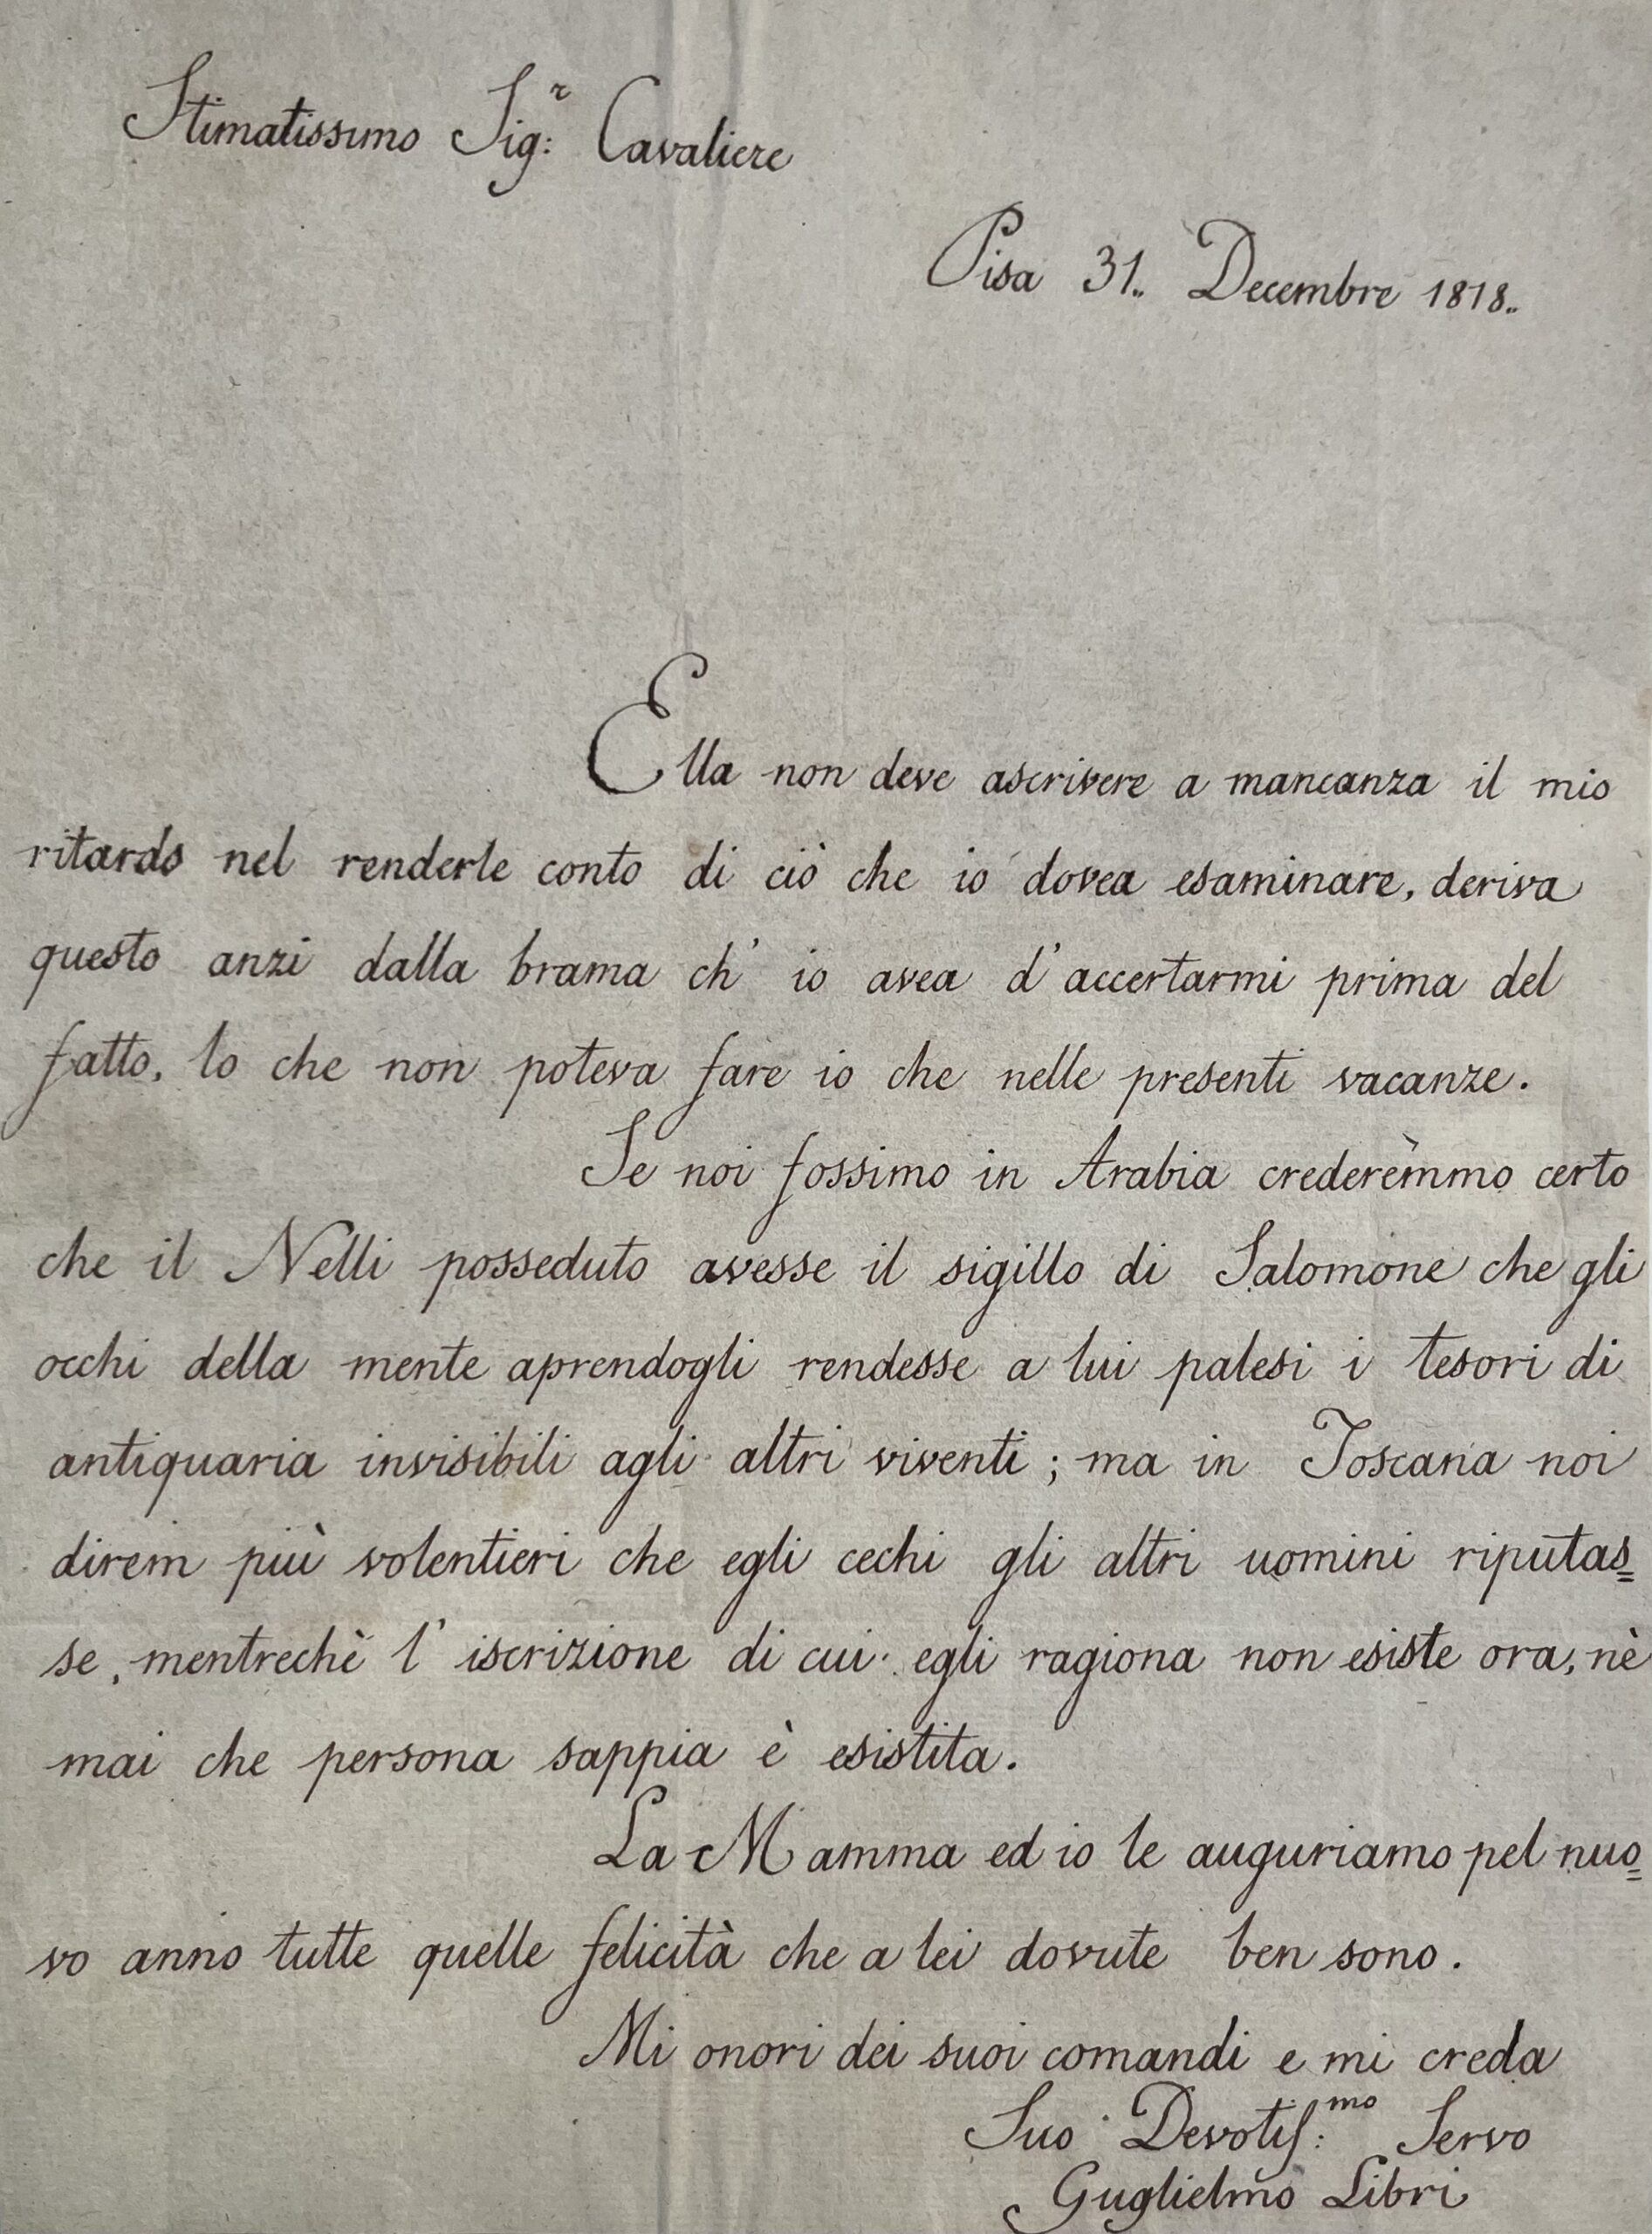 Stimatissimo Sig:r Cavaliere
Pisa 31.. Decembre 1818..
Ella non deve ascrivere a mancanza il mio
ritardo nel renderle conto di ciò che io dovea esaminare, deriva
questo anzi dalla brama ch' io avea d'accertarmi prima del
fatto, lo che non poteva fare io che nelle presenti vacanze.
Se noi fossimo in Arabia crederèmmo certo
che il Nelli posseduto avesse il sigillo di Salomone che gli
occhi della mente aprendogli rendesse a lui palesi i tesori di
antiquaria invisibili agli altri viventi; ma in Toscana noi
direm più volentieri che egli cechi gli altri uomini riputas=
se, mentrechè l' iscrizione di cui egli ragiona non esiste ora, nè
mai che persona sappia è esistita.
La Mamma ed io le auguriamo pel nuo=
vo anno tutte quelle felicità che a lei dovute ben sono.
Mi onori dei suoi comandi e mi creda
Suo Devotiſ:mo Servo
Guglielmo Libri